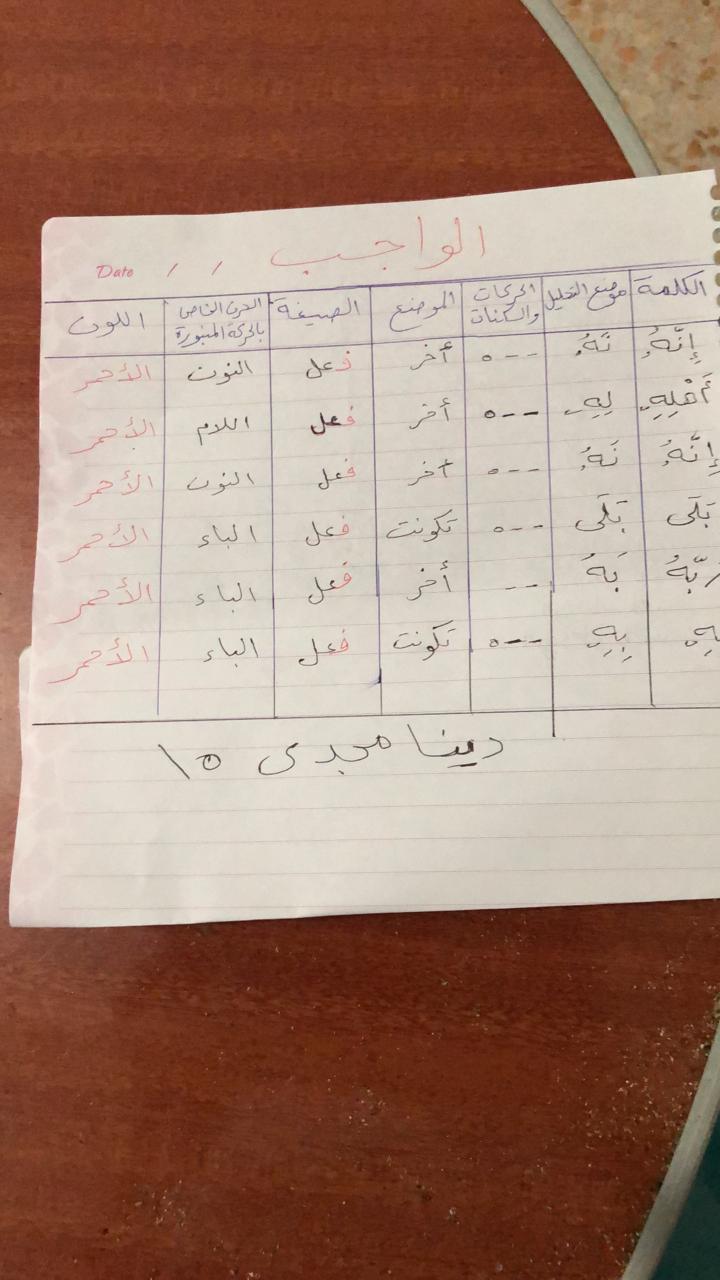 الواجب
Date / /
الكلمة موضع التحليل الحركات والسكنات الموضع الصيغة الحرف الخاص بالحركة المنبورة اللون
إِنَّهُۥ نَهُۥ ---ه أخر فعل النون الأحمر
أَهْلِهِۦ لِهِۦ ---ه أخر فعل اللام الأحمر
إِنَّهُۥ نَهُۥ ---ه أخر فعل النون الأحمر
بَلَى بَلَى ---ه تكونت فعل الباء الأحمر
رَبَّهُ بَهُ -- أخر فعل الباء الأحمر
بِهِۦ ---ه تكونت فعل الباء الأحمر
دينا مجدى ١٥